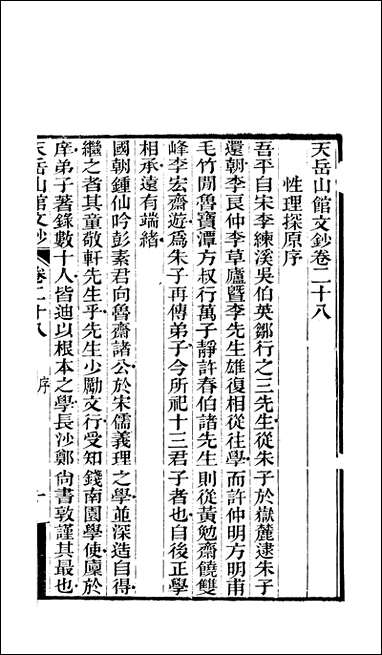 天岳山館文鈔卷二十八
性理探原序
吾平自宋李練溪吳伯英鄒行之三先生從朱子於嶽麓逮朱子
還朝李艮仲李草廬暨李先生雄復相從往學而許仲明方明甫
毛竹閒魯寶潭方叔行萬子靜許春伯諸先生則從黃勉齋饒雙
峰李宏齋遊爲朱子再傳弟子今所祀十三君子者也自後正學
相承遠有端緒
國朝鍾仙吟彭素君向魯齋諸公於宋儒義理之學並深造自得
繼之者其童敬軒先生乎先生少勵文行受知錢南園學使廩於
庠弟子著錄數十人皆迪以根本之學長沙鄭尙書敦謹其最也
天岳山館文鈔
卷二十八
序
一